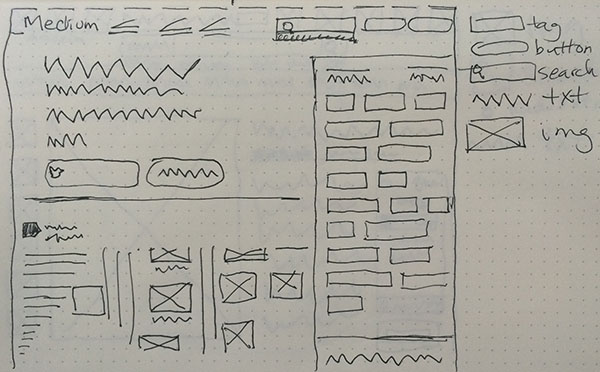 Medium
tag
button
search
txt
img